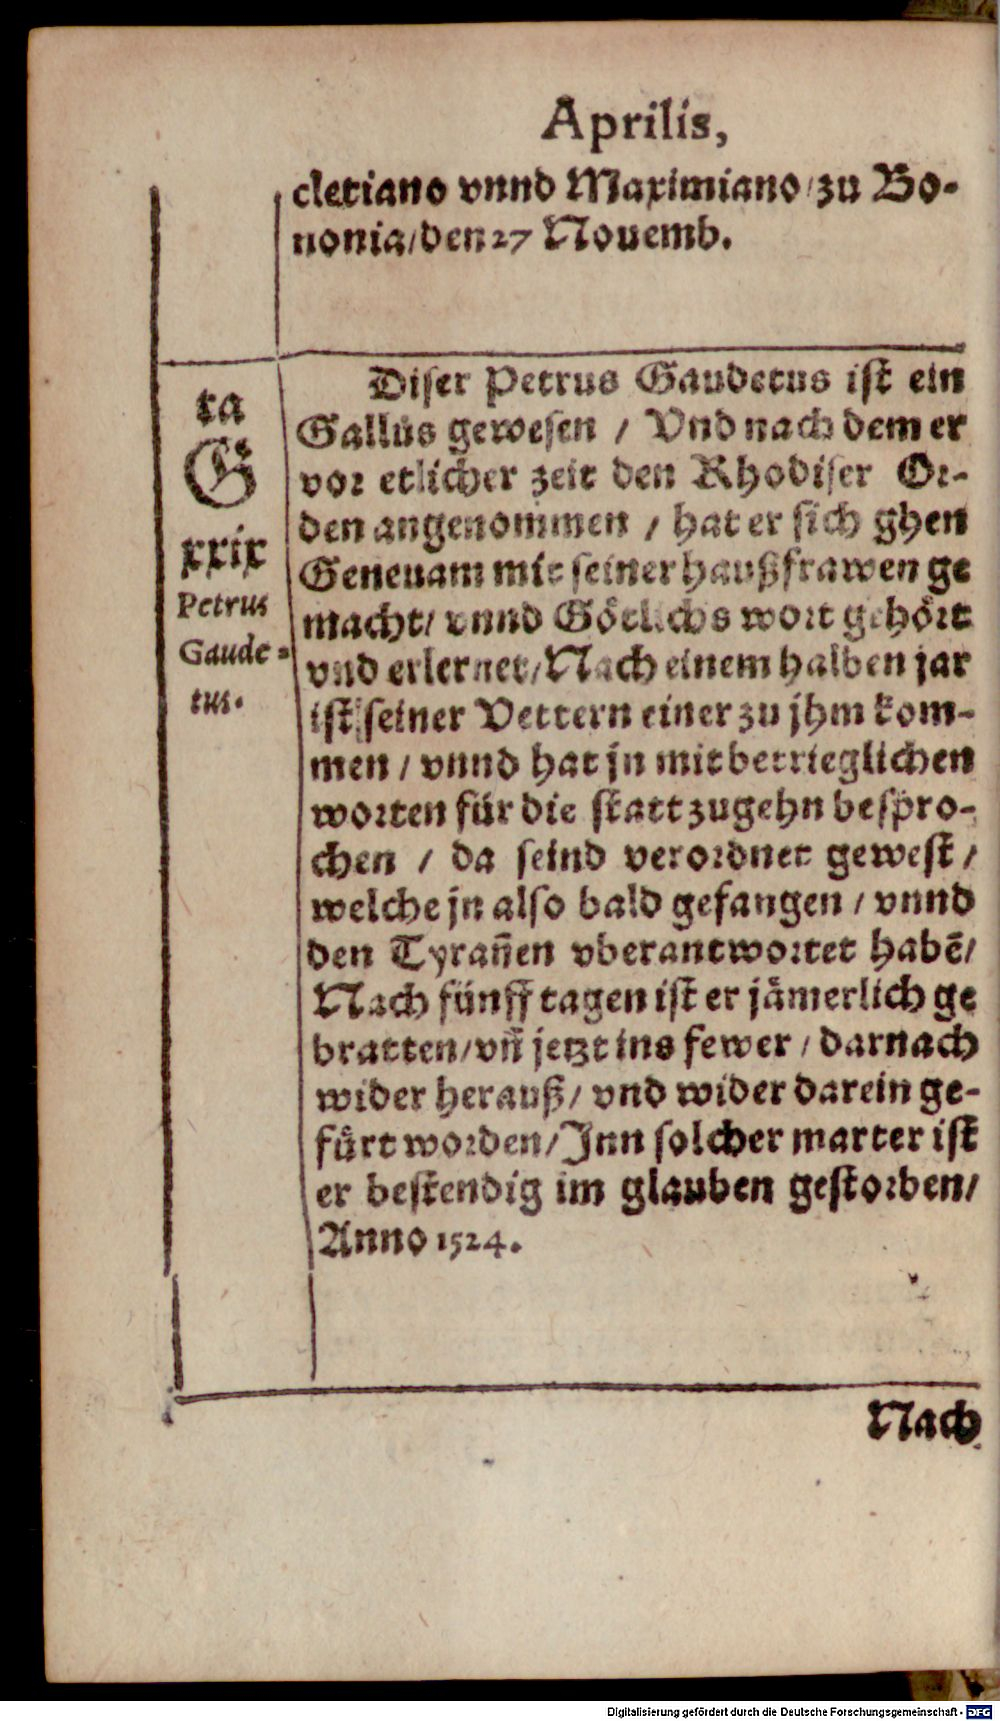 Aprilis,
cletiano vnnd Maximiano/zu Bo-
nonia/den 27 Nouemb.
ta
G
xxix
Petrus
Gaude-
tus.
Diser Petrus Gaudetus ist ein
Gallus gewesen / Vnd nach dem er
vor etlicher zeit den Rhodiser Or-
den angenommen / hat er sich ghen
Geneuam mit seiner haußfrawen ge
macht/ vnnd Götlichs wort gehört
vnd erlernet/Nach einem halben jar
ist seiner Vettern einer zu jhm kom-
men / vnnd hat jn mit betrieglichen
worten für die statt zugehn bespro-
chen / da seind verordnet gewest /
welche jn also bald gefangen / vnnd
den Tyrañen vberantwortet habē/
Nach fünff tagen ist er jämerlich ge
bratten/vñ jetzt ins fewer / darnach
wider herauß/ vnd wider darein ge-
fürt worden/Inn solcher marter ist
er bestendig im glauben gestorben/
Anno 1524.
Nach
Digitalisierung gefördert durch die Deutsche Forschungsgemeinschaft - DFG